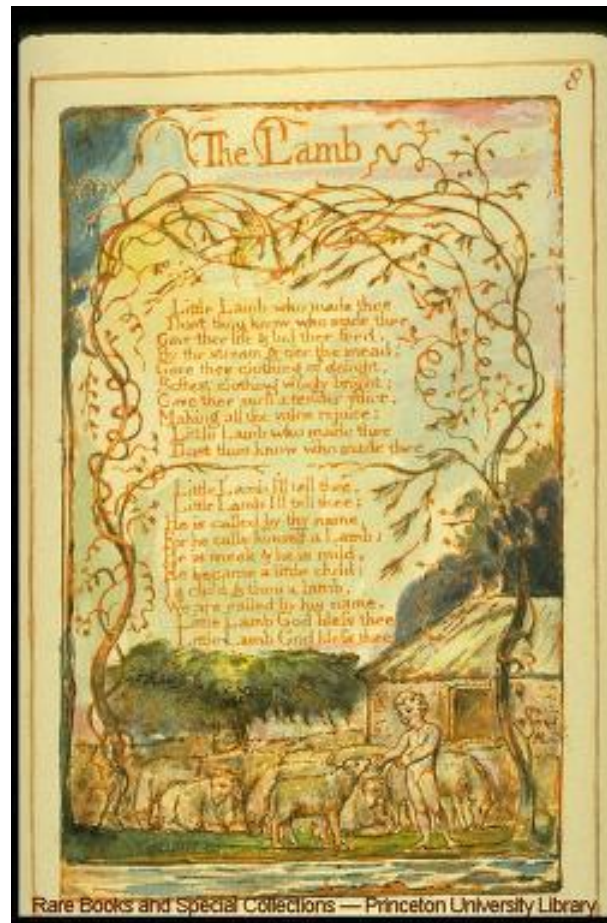 8
The Lamb
Little Lamb who made thee
Dost thou know who made thee
Gave thee life & bid thee feed,
By the stream & o'er the mead;
Gave thee clothing of delight,
Softest clothing wooly bright;
Gave thee such a tender voice,
Making all the vales rejoice:
Little Lamb who made thee
Dost thou know who made thee
Little Lamb I'll tell thee,
Little Lamb I'll tell thee;
He is called by thy name,
For he calls himself a Lamb:
He is meek & he is mild,
He became a little child:
I a child & thou a lamb,
We are called by his name,
Little Lamb God bless thee,
Little Lamb God bless thee.
Rare Books and Special Collections — Princeton University Library